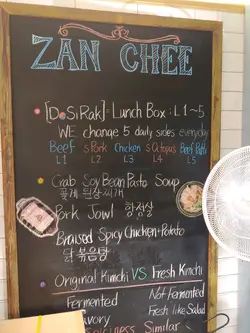 ZAN CHEE
[DoSiRak]= Lunch Box : L1~5
WE change 5 daily sides everyday
Beef S.Pork Chicken S.Octopus Beef Patty
L1 L2 L3 L4 L5
Crab Soy Bean Pasta Soup
꽃게 된장찌개
Pork Jowl 항정살
Braised Spicy Chicken+Potato
닭 볶음탕
Original Kimchi VS Fresh Kimchi
Fermented Not Fermented
Savory Fresh like Salad
Spiciness Similar